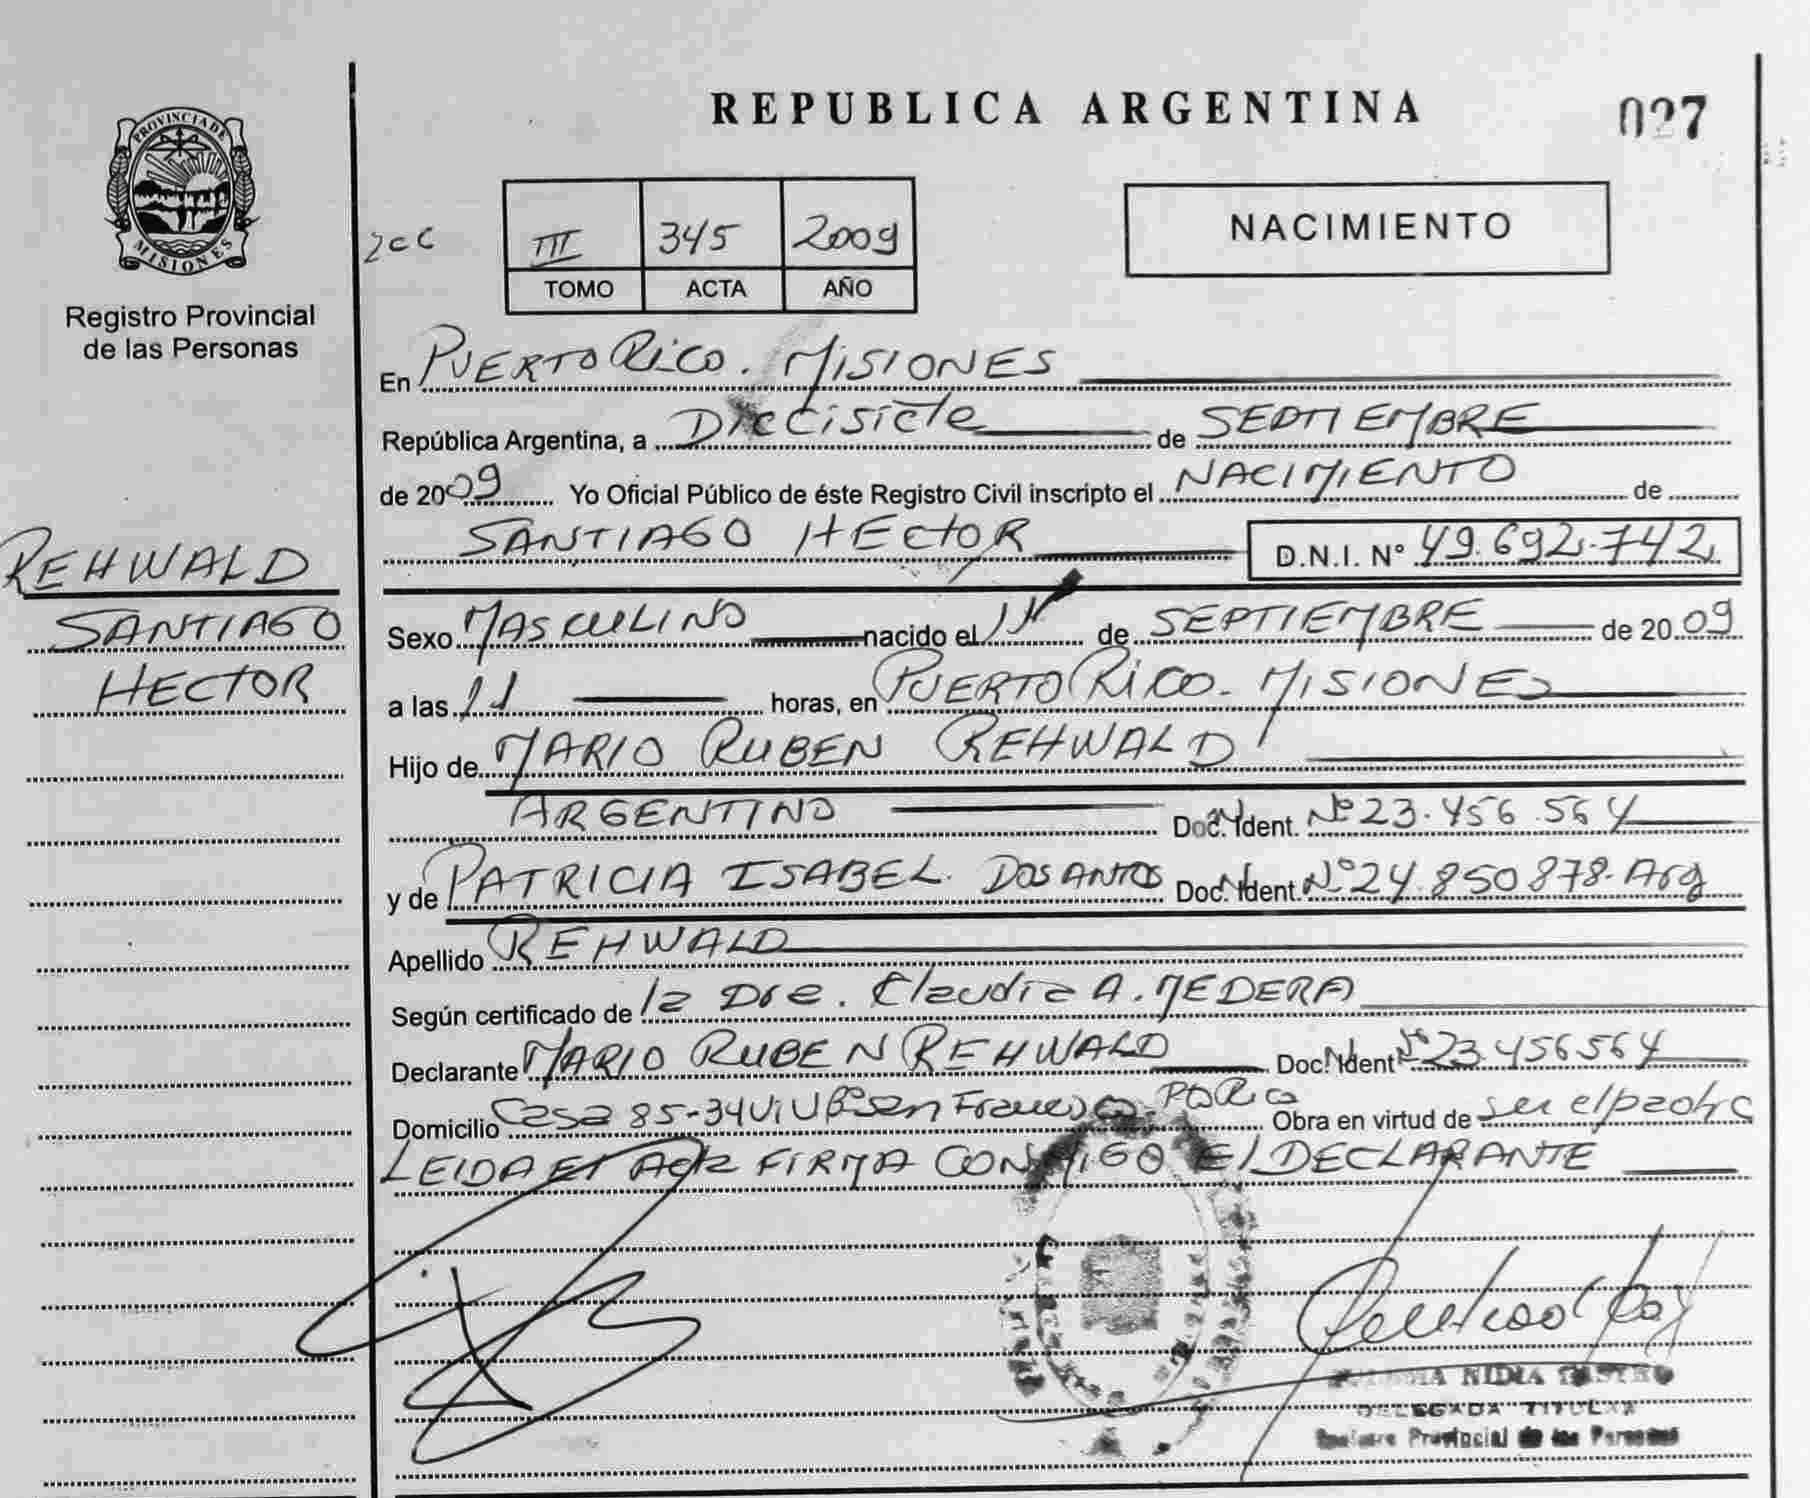 REPUBLICA ARGENTINA
027
PROVINCIA DE
MISIONES
Registro Provincial
de las Personas
2cc
III 345 2009
TOMO ACTA AÑO
NACIMIENTO
En PUERTO RICO. MISIONES
República Argentina, a Diecisiete de SEPTIEMBRE
de 2009 Yo Oficial Público de éste Registro Civil inscripto el NACIMIENTO de
SANTIAGO HECTOR D.N.I. Nº 49.692.742
REHWALD
SANTIAGO
HECTOR
Sexo MASCULINO nacido el de SEPTIEMBRE de 2009
a las 11 horas, en PUERTO RICO. MISIONES
Hijo de MARIO RUBEN REHWALD
ARGENTINO Doc. Ident. Nº 23.456.564
y de PATRICIA ISABEL DOSANTOS Doc. Ident. Nº 24.850878. Arg
Apellido REHWALD
Según certificado de la Dra. Claudia A. MEDERA
Declarante MARIO RUBEN REHWALD Doc. Ident Nº 23.456564
Domicilio Casa 85-34 Viv Bº San Francisco. Pto Rico Obra en virtud de ser el padre
LEIDA El Acta FIRMA CONMIGO El DECLARANTE
NIDIA CASTRO
DELEGADA TITULAR
Registro Provincial de las Personas